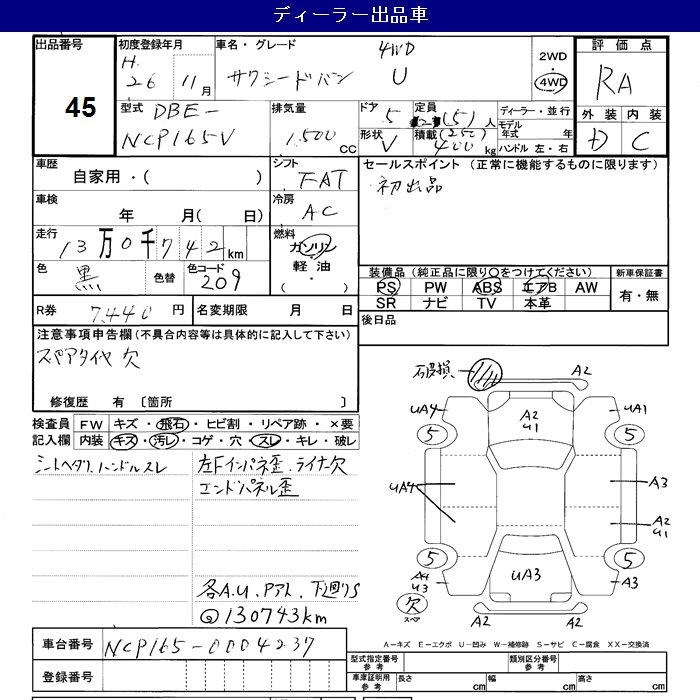 ディーラー出品車
出品番号
45
初度登録年月
H.
26 年 11 月
車名・グレード
4WD
サクシードバン U
2WD
・
4WD
評価点
RA
外装 内装
D C
型式 DBE-
NCP165V
排気量
1,500 CC
ドア 5
形状 V
定員 2(5)人
積載 (250)
400 kg
ディーラー・並行
モデル
年式 年
ハンドル 左・右
車歴
自家用・( )
シフト
FAT
車検
年 月( 日)
冷房
AC
走行
13万0千742km
燃料
ガソリン
軽油
( ・ )
色
黒
色替
色コード
209
R券 7440 円
名変期限 月 日
セールスポイント (正常に機能するものに限ります)
初出品
装備品(純正品に限り○をつけてください)
PS PW ABS エアB AW
SR ナビ TV 本革
新車保証書
有・無
後日品
注意事項申告欄(不具合内容等は具体的に記入して下さい)
スペアタイヤ欠
修復歴 有 〔箇所 〕
検査員
記入欄
FW キズ・飛石・ヒビ割・リペア跡・×要
内装 キズ・汚レ・コゲ・穴・スレ・キレ・破レ
シートヘタリ.ハンドルスレ
左Fインパネ歪.ライナ欠
エンドパネル歪
各A.U.Pアト.下廻りS
@130743km
石破損
A2
UA4
A2
U1
UA1
5
5
UA4
A3
A2
U1
5
5
UA3
A4
U3
A3
欠
スペア
A2
A2
車台番号 NCP165-0004237
登録番号
A-キズ E-エクボ U-凹み W-補修跡 S-サビ C-腐食 XX-交換済
型式指定番号
参考
類別区分番号
参考
車庫証明用
参考
長さ cm
幅 cm
高さ cm